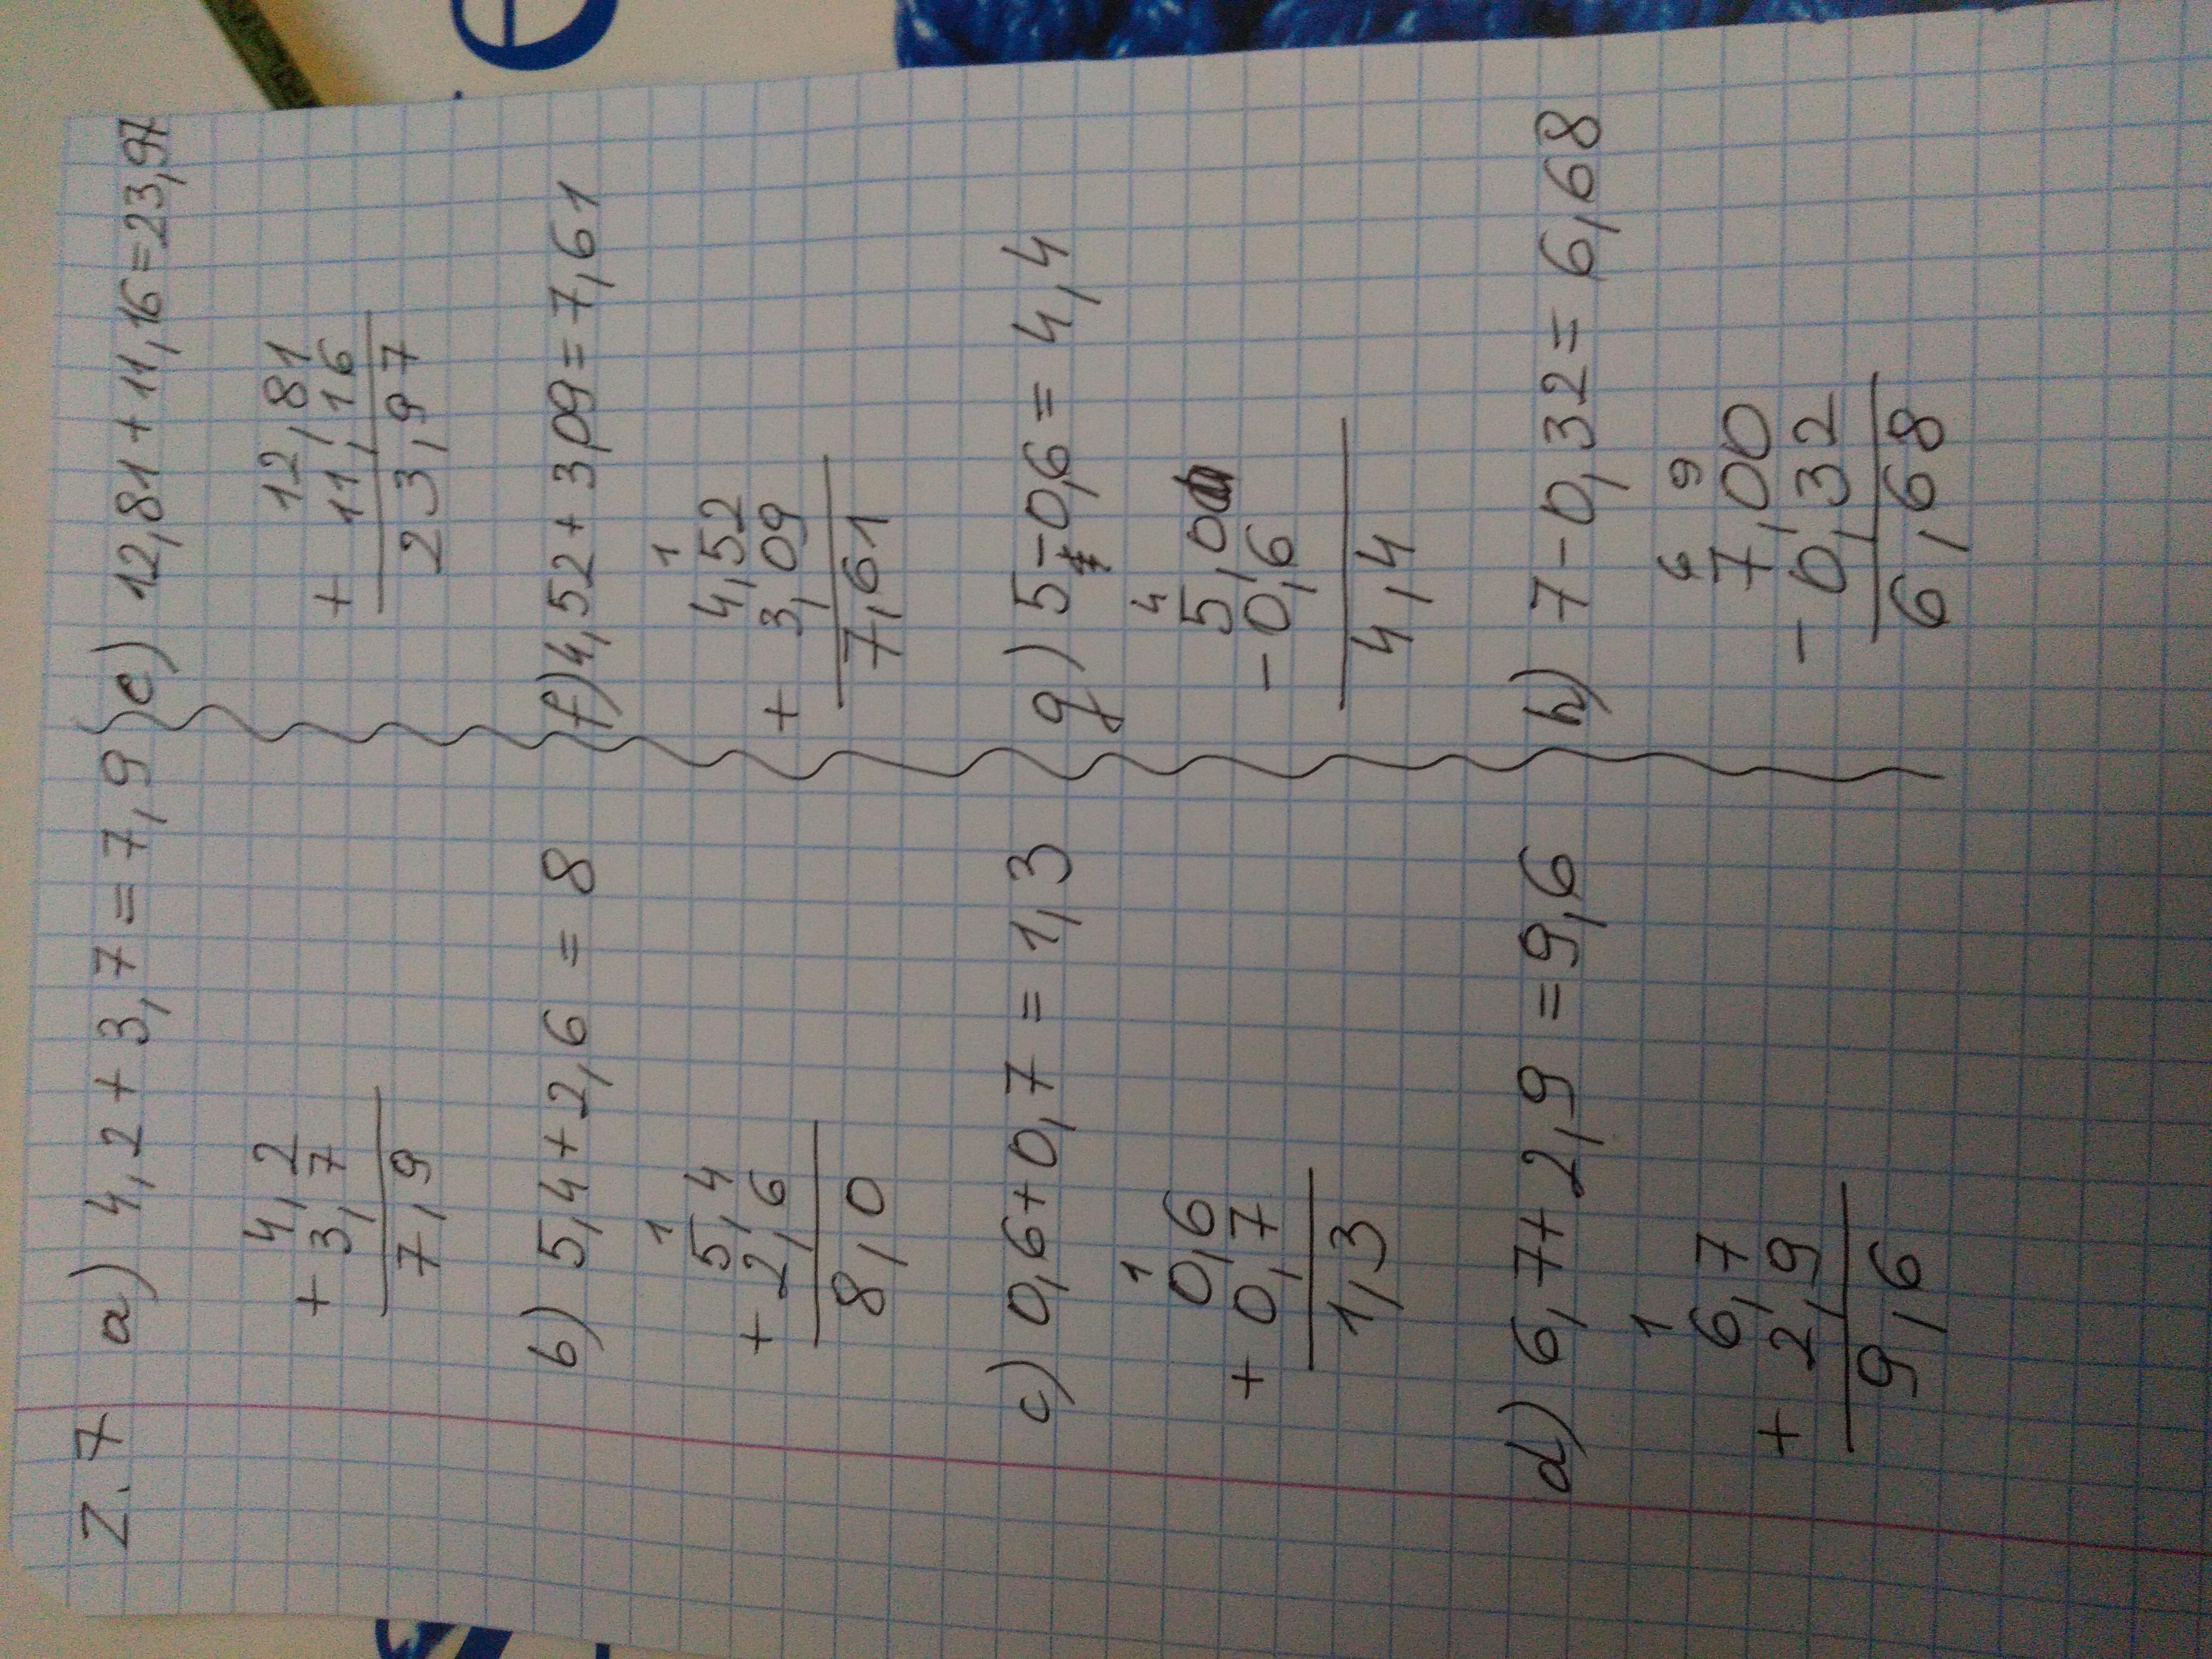 Z. 7 a) 4,2 + 3,7 = 7,9
4,2
+ 3,7
7,9
b) 5,4 + 2,6 = 8
1
5,4
+ 2,6
8,0
c) 0,6 + 0,7 = 1,3
1
0,6
+ 0,7
1,3
d) 6,7 + 2,9 = 9,6
1
6,7
+ 2,9
9,6
e) 12,81 + 11,16 = 23,97
12,81
+ 11,16
23,97
f) 4,52 + 3,09 = 7,61
1
4,52
+ 3,09
7,61
g) 5 - 0,6 = 4,4
4
5,0
- 0,6
4,4
h) 7 - 0,32 = 6,68
6 9
7,00
- 0,32
6,68